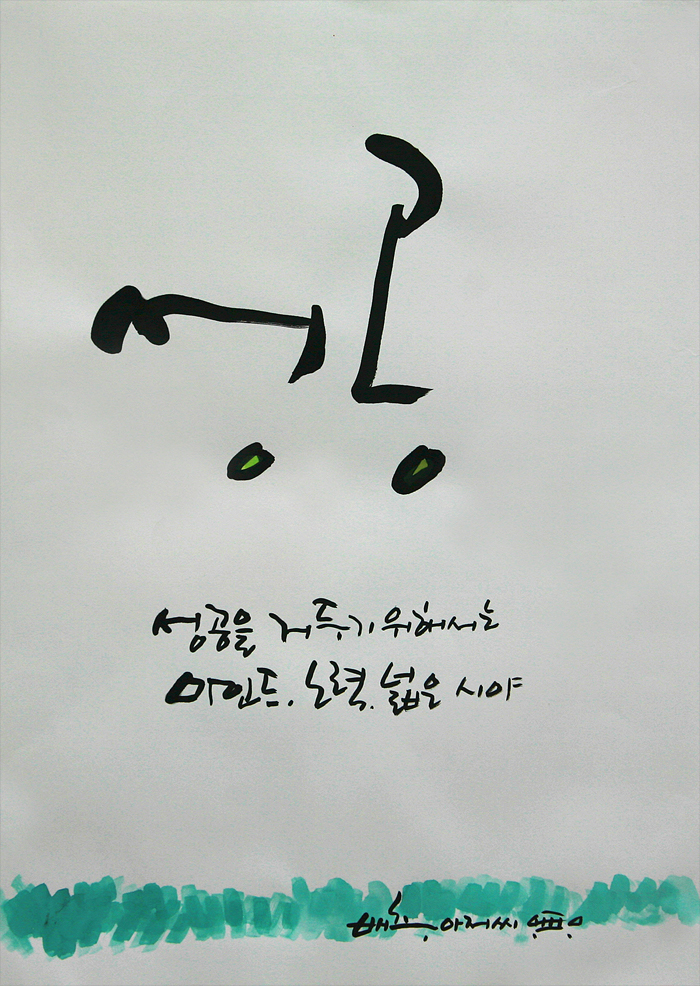 성공을 거두기 위해서는
마인드. 노력. 넓은 시야
아저씨